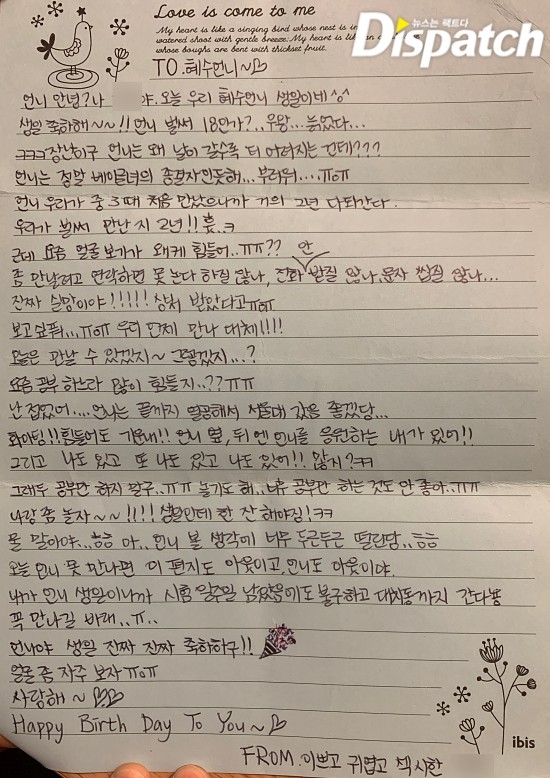 Love is come to me
My heart is like a singing bird whose nest is in a
watered shoot with gentle breeze: My heart is like an
whose boughs are bent with thickset fruit.
뉴스는 팩트다
Dispatch
TO. 혜수언니~♡
언니 안녕? 나 야. 오늘 우리 혜수언니 생일이네^o^
생일 축하해~~!! 언니 벌써 18인가?..우왕... 늙었다...
ㅋㅋㅋ장난이구 언니는 왜 날이 갈수록 더 어려지는 건데???
언니는 정말 베이글녀의 종결자인듯해... 부러워....ㅠoㅠ
언니 우리가 중3때 처음 만났으니까 거의 2년 다되간다.
우리가 벌써 만난지 2년!! 흝.ㅋ
근데 요즘 얼굴보기가 왜케 힘들어..ㅠㅠ??
좀 만날려고 연락하면 못 논다 하질 않나, 전화 안 받질 않나, 문자 씹질 않나...
진짜 실망이야!!!!! 상처 받았다고ㅠoㅠ
보고싶퓨...ㅠoㅠ 우리 언제 만나 대체!!!!
오늘은 만날 수 있겠지~ 그렇겠지...?
요즘 공부 하느라 많이 힘들지..??ㅠㅠ
난 접었어.... 언니는 끝까지 열공해서 서울대 갔음 좋겠당...
화이팅!! 힘들어도 기운내!! 언니 옆, 뒤엔 언니를 응원하는 내가 있어!!
그리고 나도 있고 또 나도 있고 나도 있어!! 많지?ㅋㅋ
그래두 공부만 하지 말구..ㅠㅠ 놀기도 해..너무 공부만 하는 것도 안 좋아..ㅠㅠ
나랑 좀 놀자~~!!!! 생일인데 한 잔 해야징!ㅋㅋ
물 말이야..ㅎㅎ 아.. 언니 볼 생각에 너무 두근두근 떨린당..ㅎㅎ
오늘 언니 못 만나면 이 편지도 아웃이고 언니도 아웃이야.
내가 언니 생일이니까 시험 일주일 남았음에도 불구하고 대치동까지 간다뿅
꼭 만나길 바래..ㅠ..
언니야 생일 진짜 진짜 축하하구!!
얼굴 좀 자주 보자 ㅠoㅠ
사랑해~♡♡
Happy Birth Day To You~♡
FROM. 이쁘고 귀엽고 섹시한
ibis